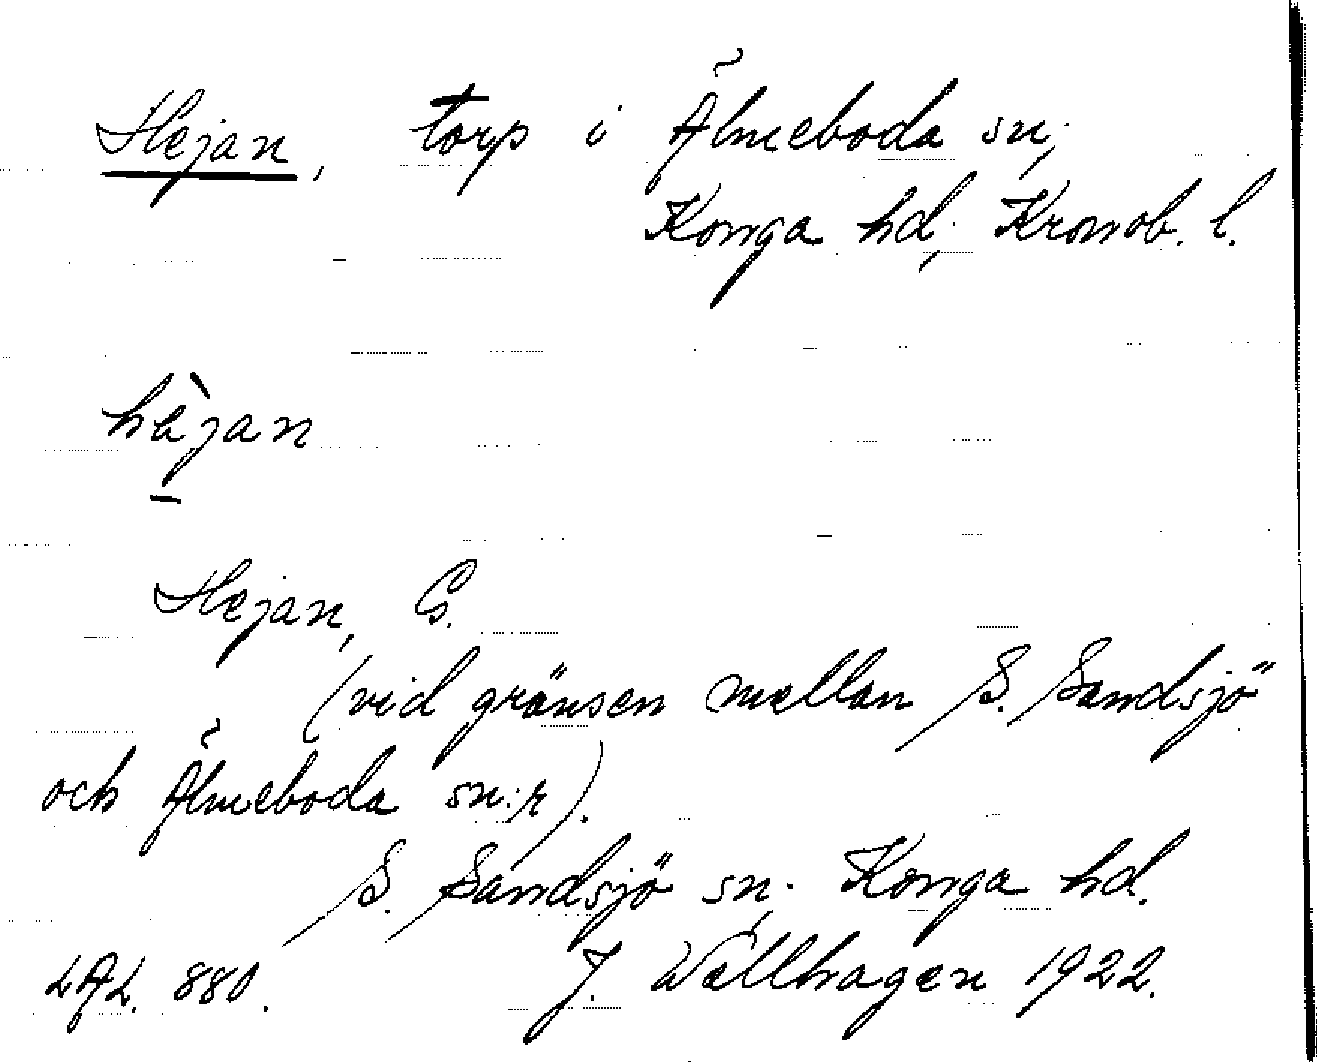 Hejan, torp i Älmeboda sn;
Konga hd; Kronob. l.
hèjan
Hejan, G.
(vid gränsen mellan S. Sandsjö
och Älmeboda sn:r).
S. Sandsjö sn. Konga hd.
LAL. 880. J. Wallhagen 1922.